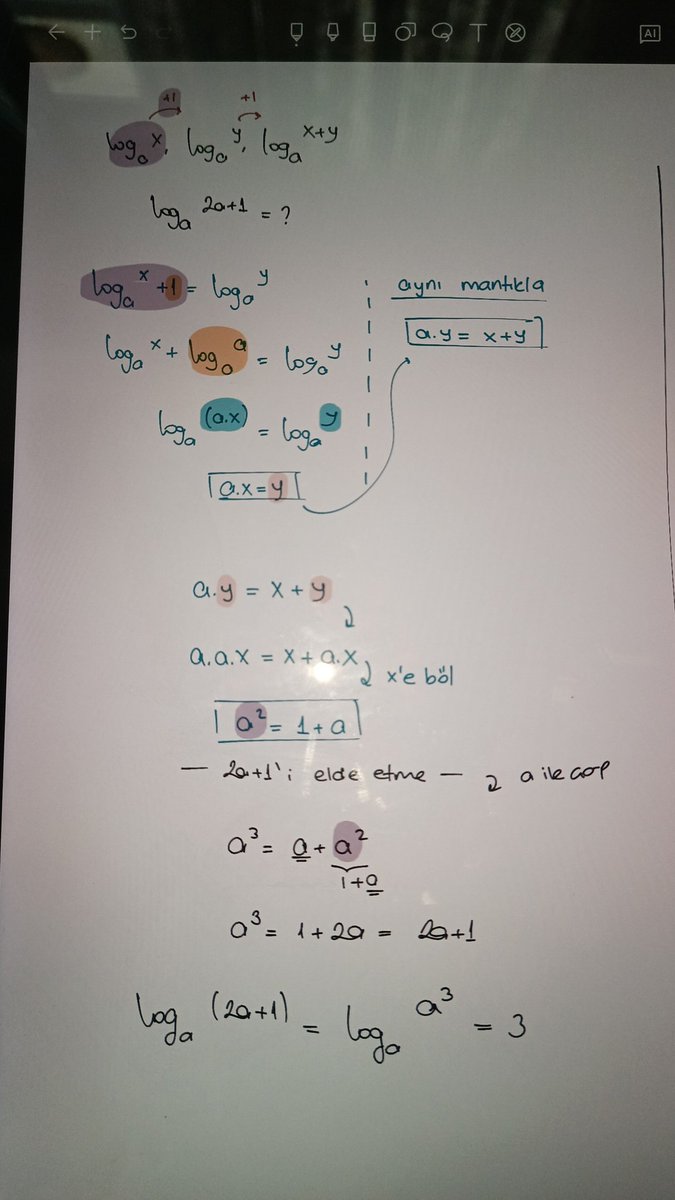 AI
+1 +1
logₐ x, logₐ y, logₐ x+y
logₐ 2a+1 = ?
logₐ x +1 = logₐ y
logₐ x + logₐ a = logₐ y
logₐ (a.x) = logₐ y
a.x = y
aynı mantıkla
a.y = x+y
a.y = x + y
a.a.x = x + a.x x'e böl
a² = 1 + a
— 2a+1'i elde etme — a ile çarp
a³ = a + a²
1+a
a³ = 1 + 2a = 2a+1
logₐ (2a+1) = logₐ a³ = 3